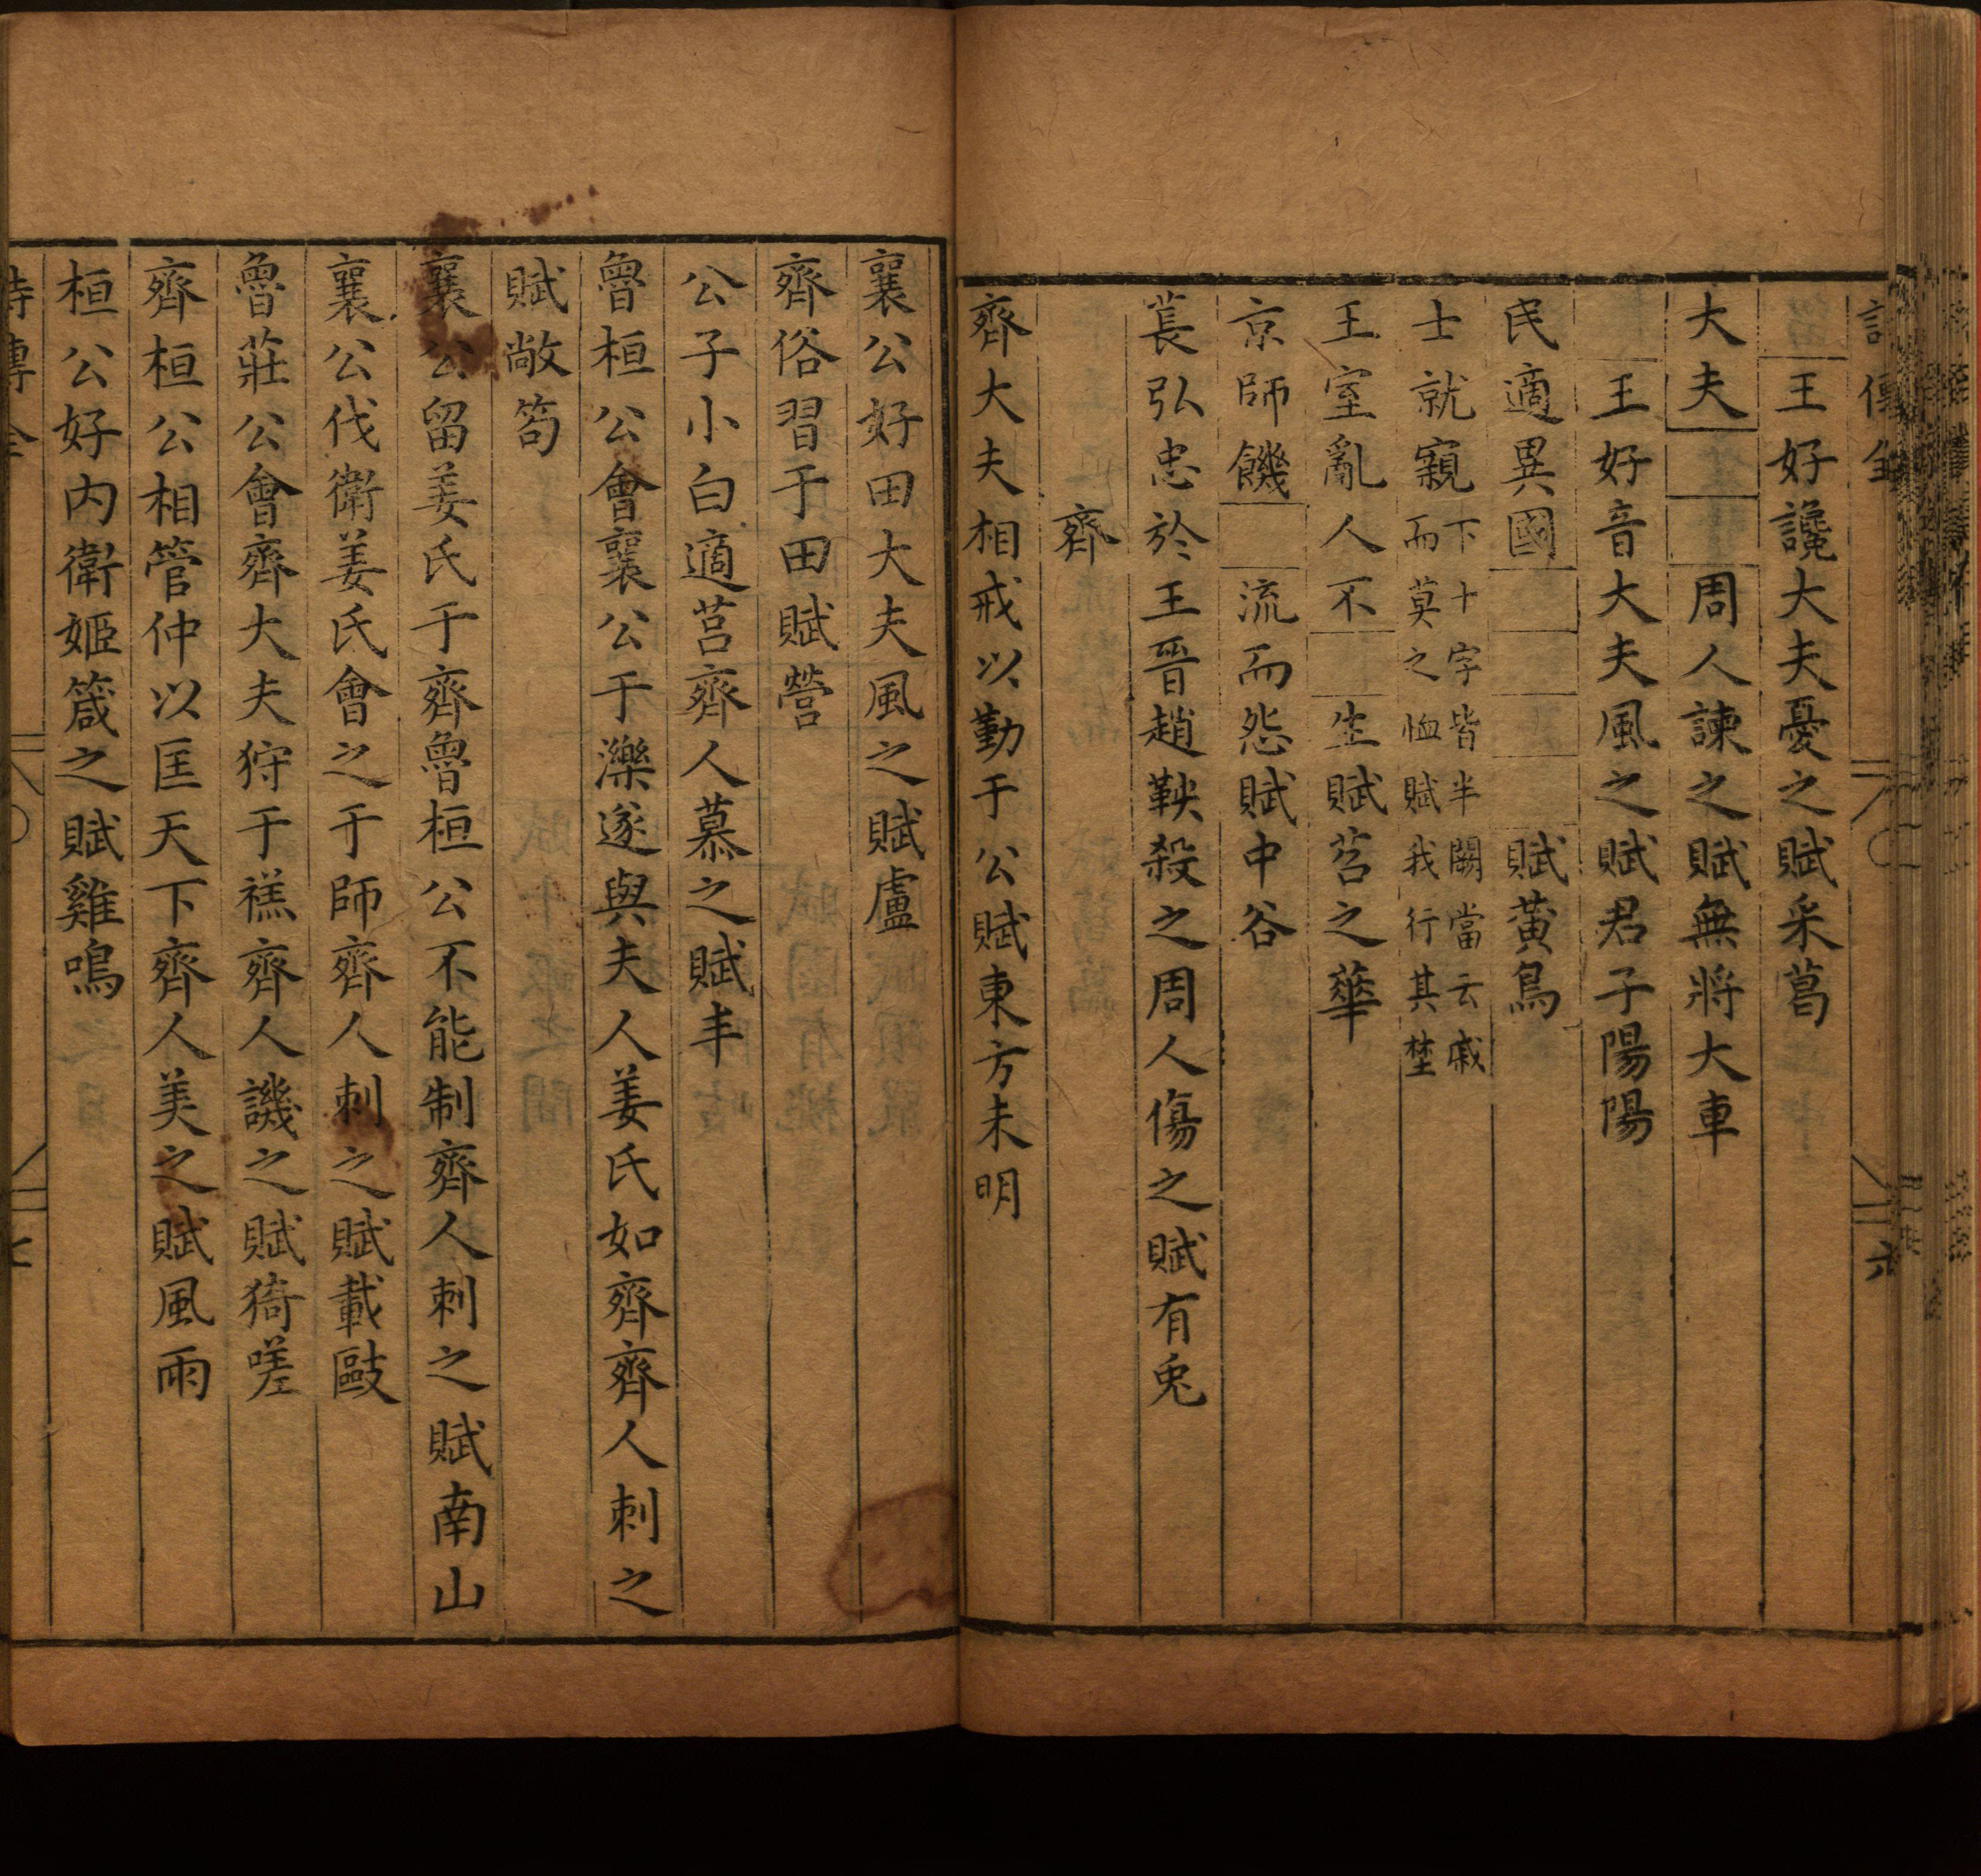 王好讒大夫憂之賦采葛
大夫□□周人諫之賦無將大車
王好音大夫風之賦君子陽陽
民適異國□□□□賦黃鳥
士就親下十字皆半闕當云戚而莫之恤賦我行其埜
王室亂人不□生賦苕之華
京師饑□流而怨賦中谷
萇弘忠於王晉趙鞅殺之周人傷之賦有兎
齊
齊大夫相戒以勤于公賦東方未明
襄公好田大夫風之賦盧
齊俗習于田賦營
公子小白適莒齊人慕之賦丰
魯桓公會襄公于濼遂與夫人姜氏如齊齊人刺之
賦敝笱
襄公留姜氏于齊魯桓公不能制齊人刺之賦南山
襄公伐衛姜氏會之于師齊人刺之賦載敺
魯莊公會齊大夫狩于禚齊人譏之賦猗嗟
齊桓公相管仲以匡天下齊人美之賦風雨
桓公好内衛姬箴之賦雞鳴